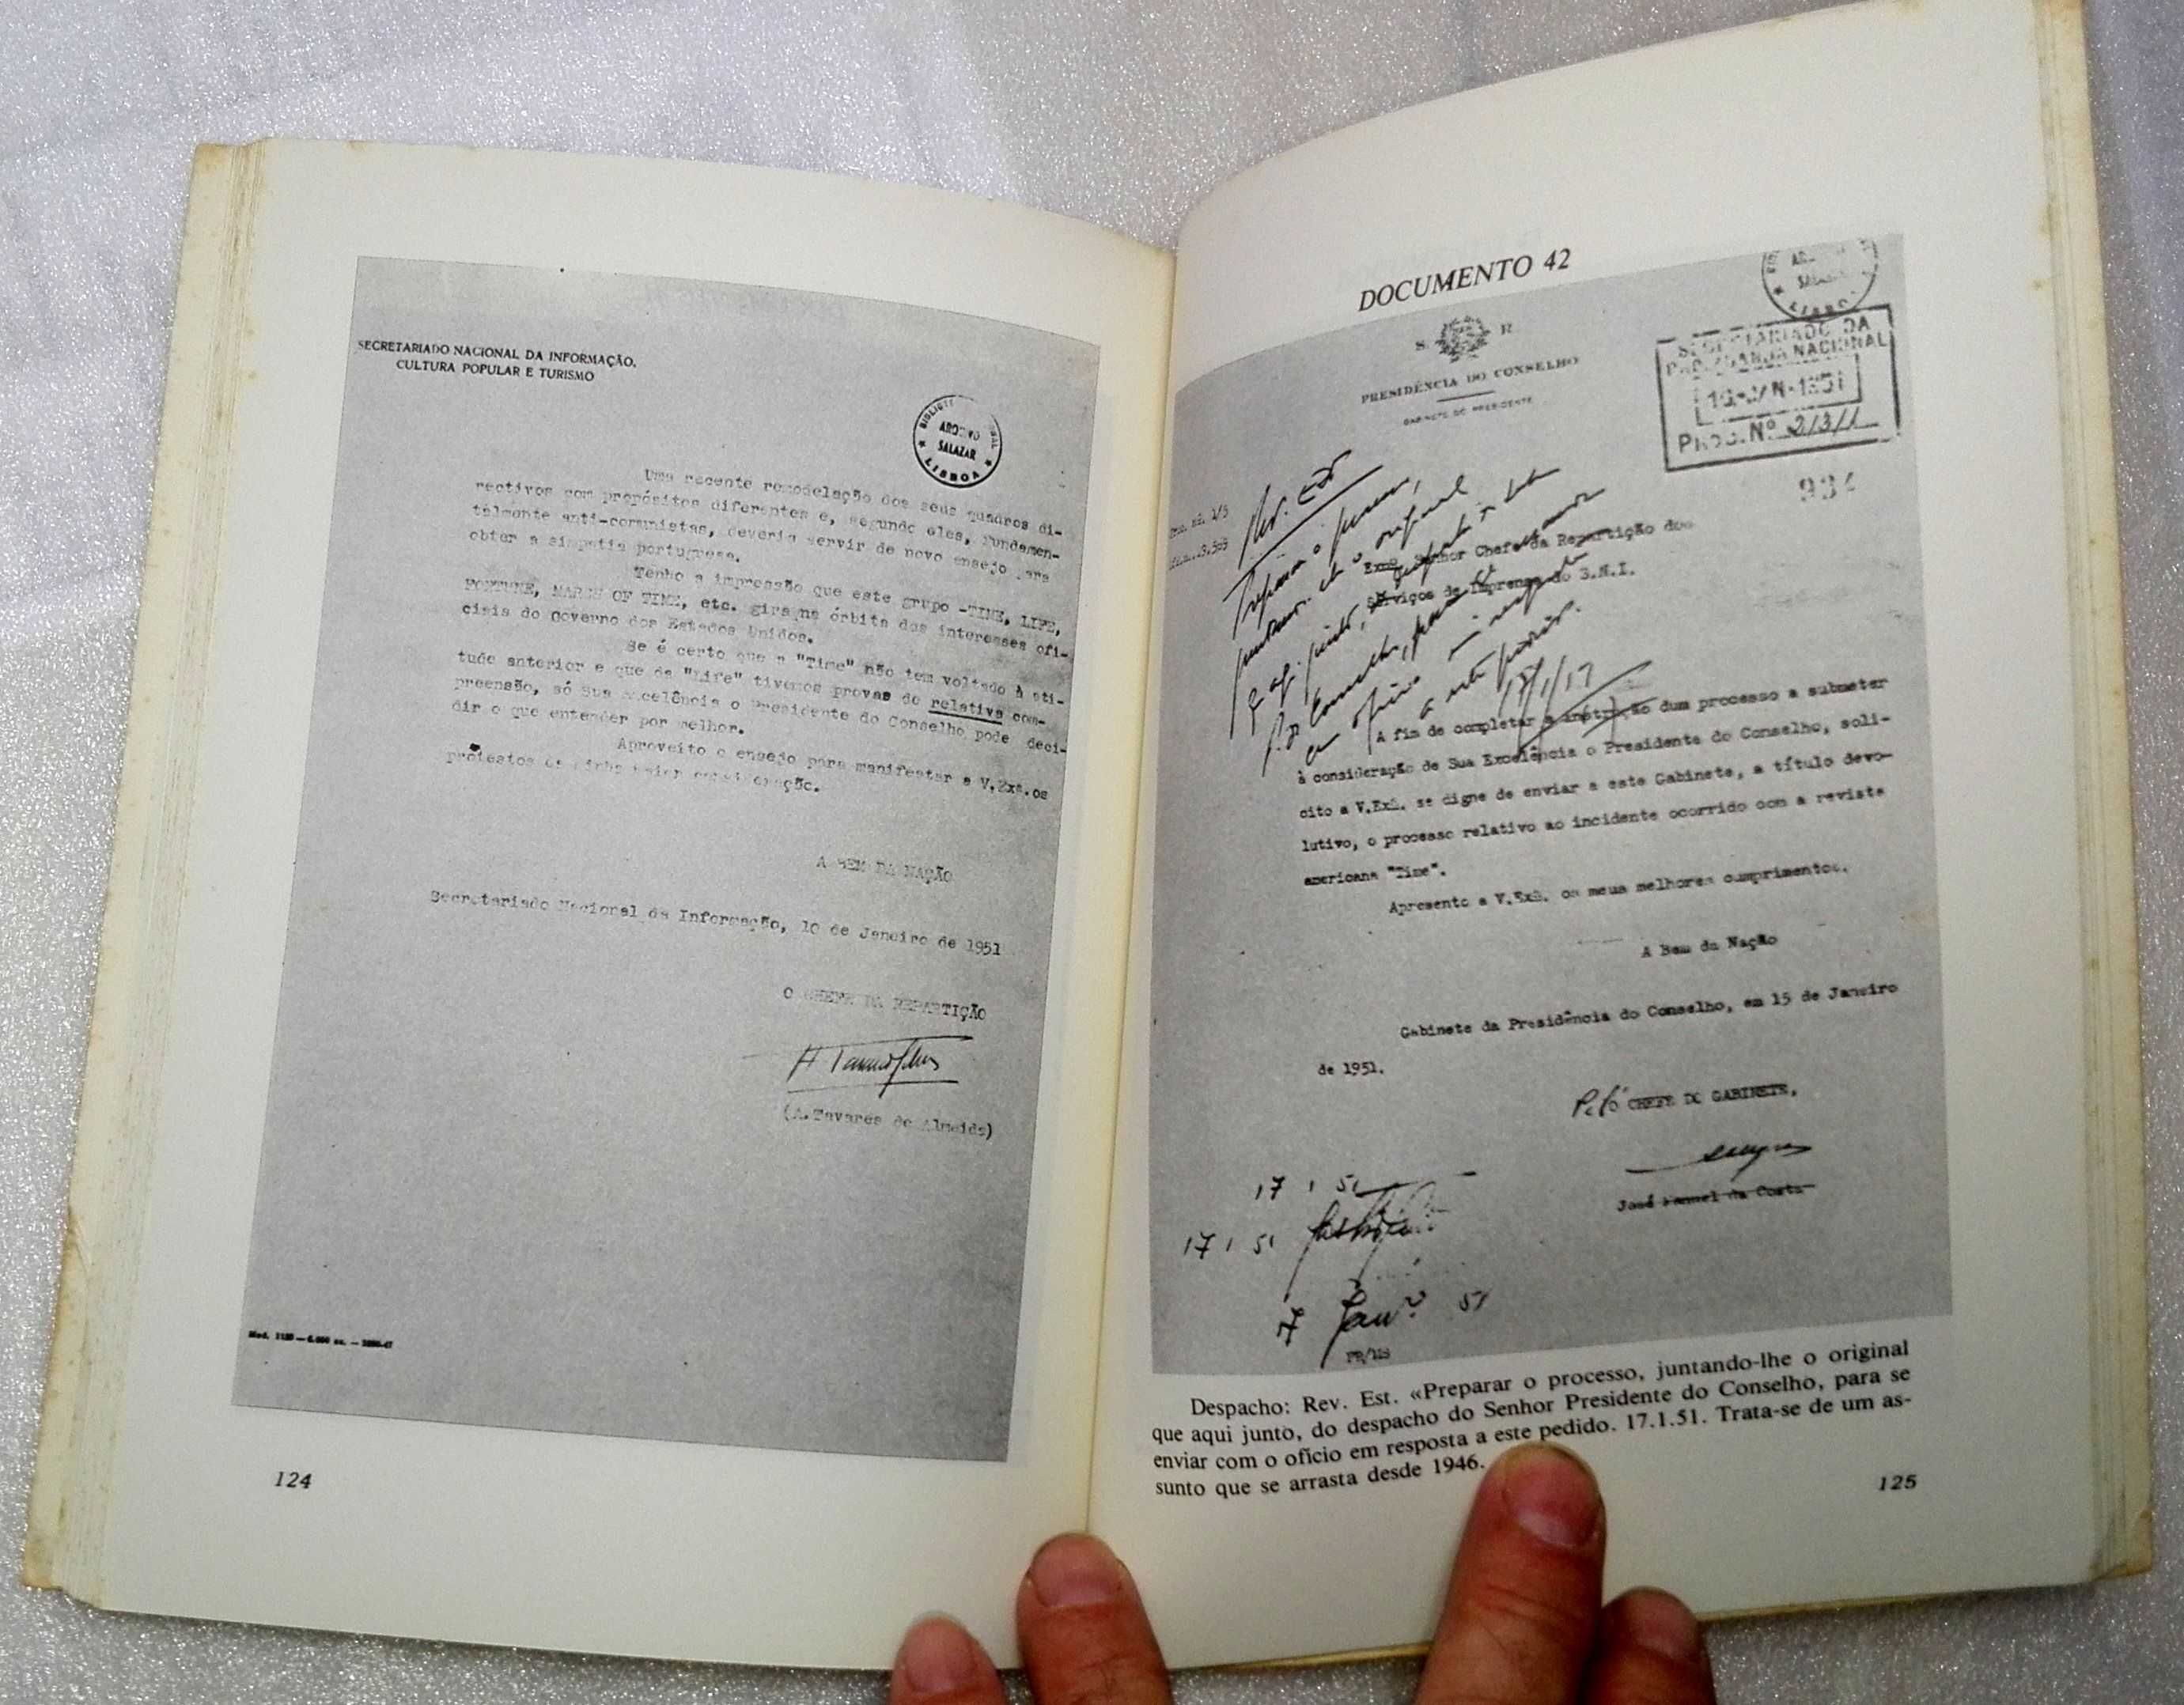 SECRETARIADO NACIONAL DA INFORMAÇÃO,
CULTURA POPULAR E TURISMO
ARQUIVO
SALAZAR
LISBOA
Uma recente remodelação dos seus quadros di-
rectivos com propósitos diferentes e, segundo eles, fundamen-
talmente anti-comunistas, deveria servir de novo ensejo para
obter a simpatia portuguesa.
Tenho a impressão que este grupo -TIME, LIFE,
FORTUNE, MARCH OF TIME, etc. gira na órbita dos interesses ofi-
ciais do governo dos Estados Unidos.
Se é certo que a "Time" não tem voltado à ati-
tude anterior e que da "Life" tivemos provas de relativa com-
preensão, só Sua Excelência o Presidente do Conselho pode deci-
dir o que entender por melhor.
Aproveito o ensejo para manifestar a V.Exª.os
protestos da minha maior consideração.
A BEM DA NAÇÃO
Secretariado Nacional da Informação, 10 de Janeiro de 1951
O CHEFE DA REPARTIÇÃO
(A.Tavares de Almeida)
124
DOCUMENTO 42
S. R.
PRESIDÊNCIA DO CONSELHO
GABINETE DO PRESIDENTE
SALAZAR
LISBOA
SECRETARIADO DA
PROPAGANDA NACIONAL
PROC. Nº 2/3/1
Rev. Est
Exmº. Senhor Chefe da Repartição dos
Serviços de Imprensa do S.N.I.
A fim de completar a instrução dum processo a submeter
à consideração de Sua Excelência o Presidente do Conselho, soli-
cito a V.Exª. se digne de enviar a este Gabinete, a título devo-
lutivo, o processo relativo ao incidente ocorrido com a revista
americana "Time".
Apresento a V.Exª. os meus melhores cumprimentos.
A Bem da Nação
Gabinete da Presidência do Conselho, em 15 de Janeiro
de 1951.
CHEFE DO GABINETE,
José Manuel da Costa
17 1 51
17 1 51
17 Janº 51
Despacho: Rev. Est. «Preparar o processo, juntando-lhe o original
que aqui junto, do despacho do Senhor Presidente do Conselho, para se
enviar com o ofício em resposta a este pedido. 17.1.51. Trata-se de um as-
sunto que se arrasta desde 1946.
125